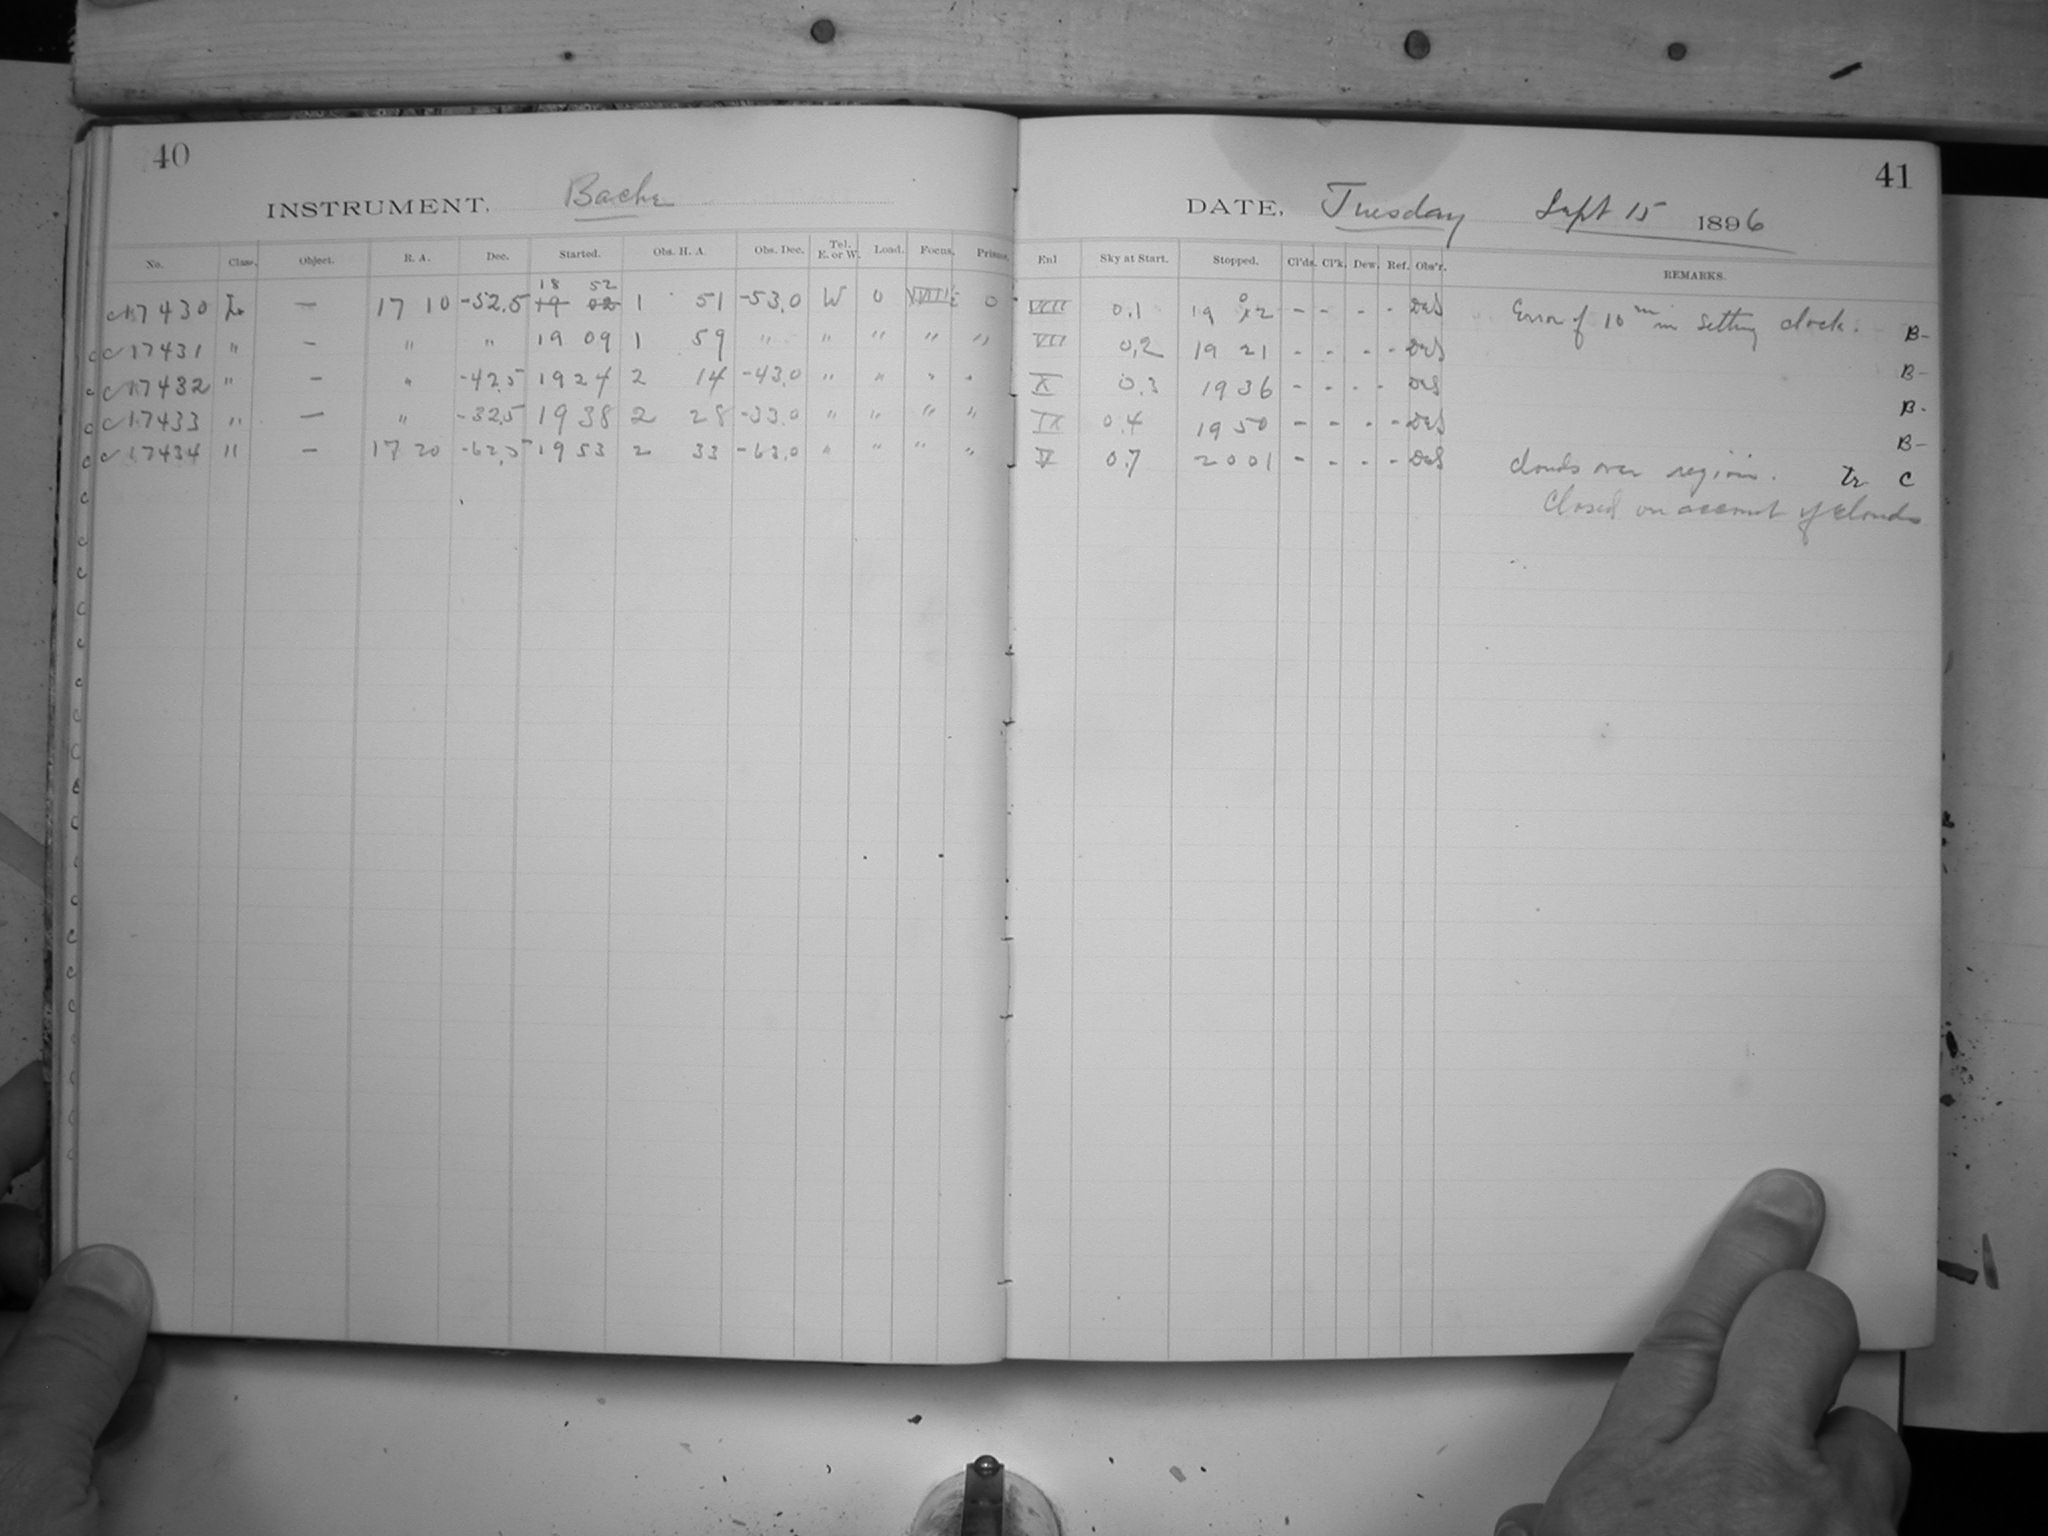 40
INSTRUMENT. Bache
No. Class. Object. R. A. Dec. Started. Obs. H. A. Obs. Dec. Tel. E. or W. Load. Focus. Prisms.
18 52
17430 — 17 10 -52.5 19 02 1 51 -53.0 W 0 0
c 17431 " — " " 19 09 1 59 " " " " "
c 17432 " — " -42.5 19 24 2 14 -43.0 " " " "
c 17433 " — " -32.5 19 38 2 28 -33.0 " " " "
c 17434 " — 17 20 -62.5 19 53 2 33 -63.0 " " " "
41
DATE, Tuesday Sept 15 1896
Enl Sky at Start. Stopped. Cl'ds. Cl'k. Dew. Ref. Obs'r. REMARKS.
VIII 0.1 19 02 - - - - DeS Error of 10 m in setting clock. B-
VII 0.2 19 21 - - - - DeS B-
X 0.3 19 36 - - - - DeS B-
IX 0.4 19 50 - - - - DeS B-
V 0.7 20 01 - - - - DeS clouds over region. Tr C
Closed on account of clouds